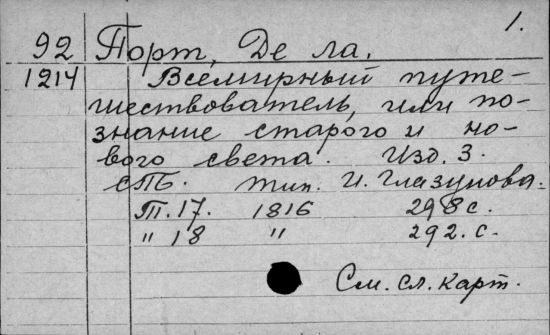 1.
92 Порт, Де ла.
1214 Всемирный путе-
шествователь, или по-
знание старого и но-
вого света. Изд. 3.
СПб. Тип. И. Глазунова.
Т. 17. 1816 298 с.
" 18 " 292. с.
См. сл. карт.